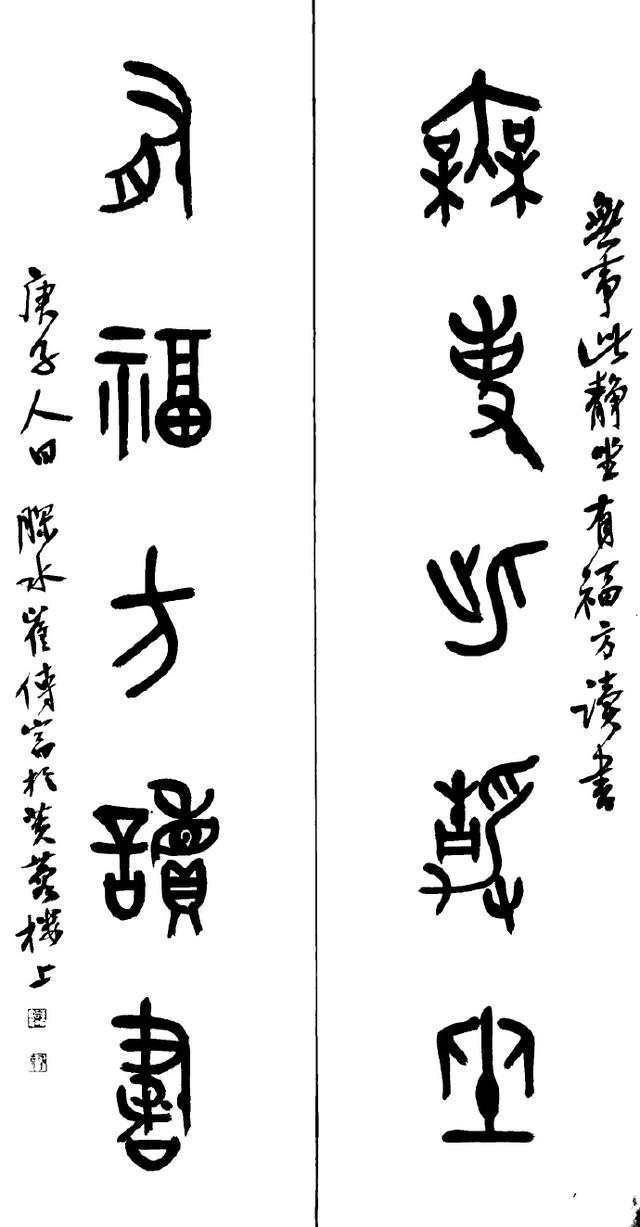 無事此靜坐有福方讀書
無事此靜坐
有福方讀書
庚子人日 膠水崔傳富於樓上